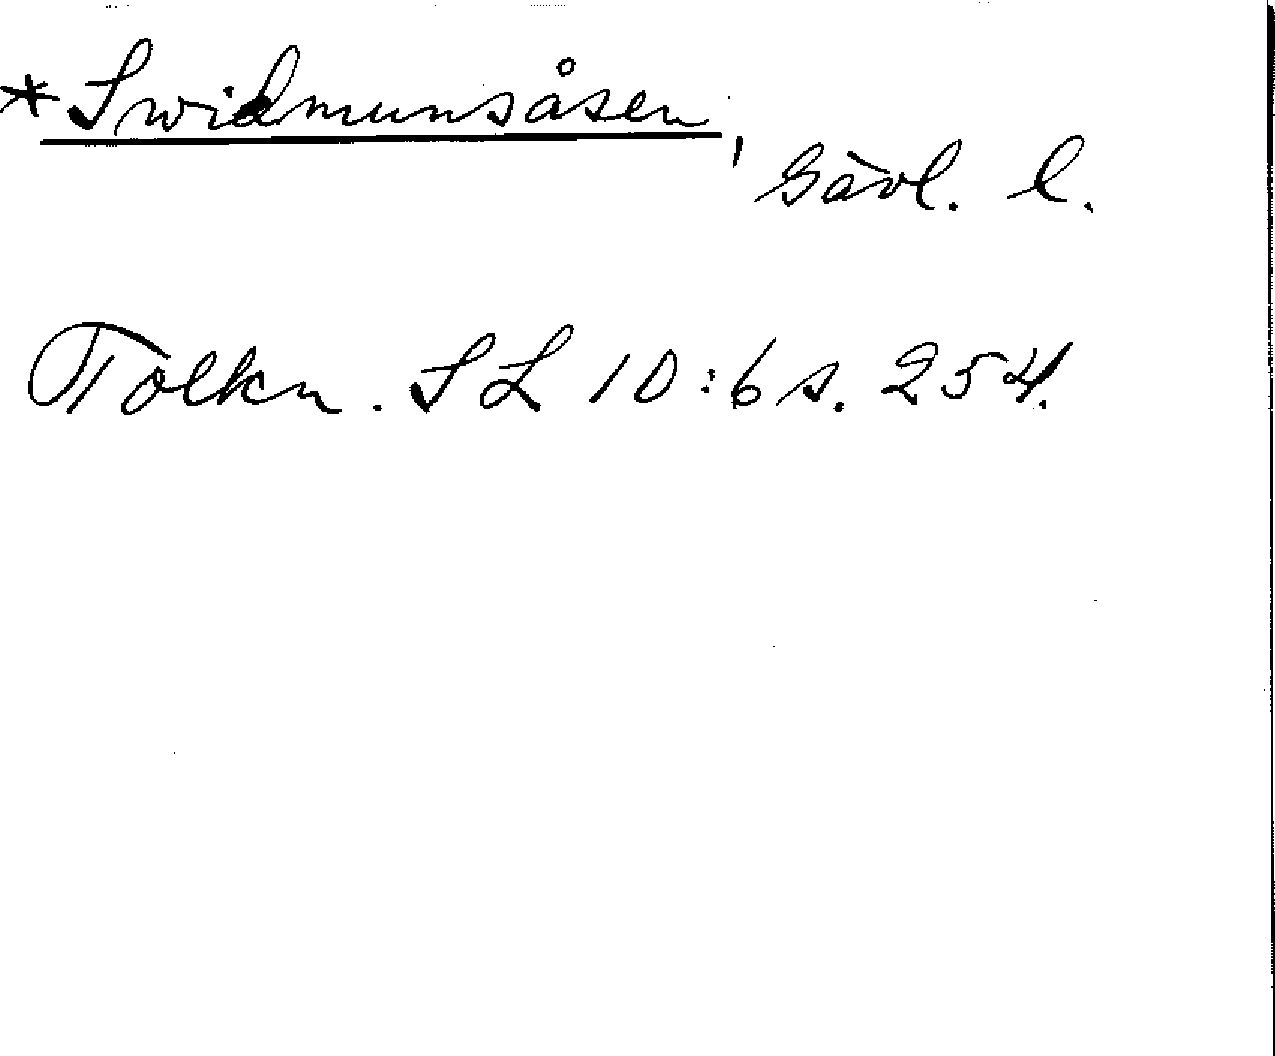 *Swidmunsåsen,
Gävl. l.
Tolkn. SL 10:6 s. 254.